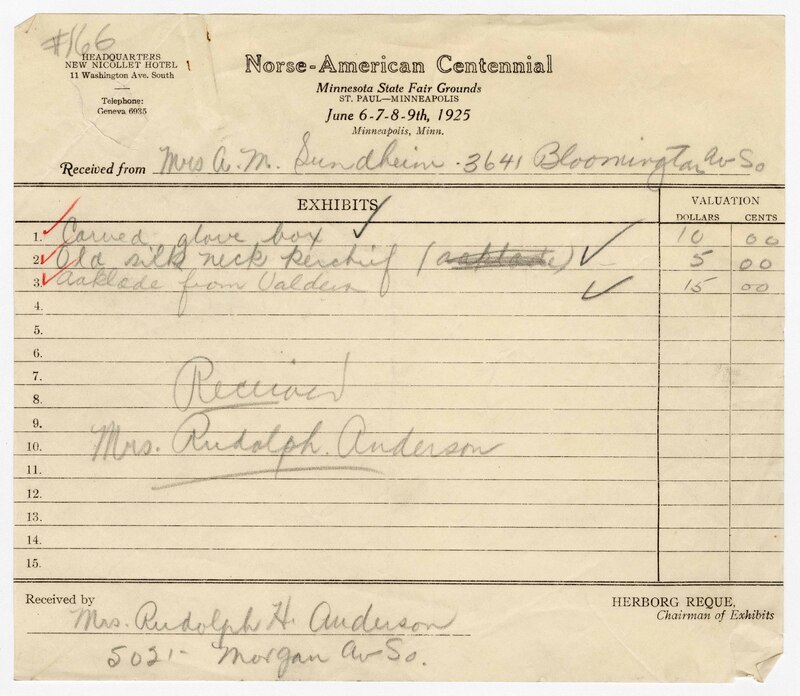 #166
HEADQUARTERS
NEW NICOLLET HOTEL
11 Washington Ave. South
Telephone:
Geneva 6935
Norse-American Centennial
Minnesota State Fair Grounds
ST. PAUL—MINNEAPOLIS
June 6-7-8-9th, 1925
Minneapolis, Minn.
Received from Mrs A. M. Sundheim - 3641 Bloomington Av So
EXHIBITS
VALUATION
DOLLARS CENTS
1. Carved glove box 10 00
2. Old silk neck kerchief (aaklade) 5 00
3. Aaklade from Valders 15 00
4.
5.
6.
7.
8. Received
9.
10. Mrs. Rudolph. Anderson
11.
12.
13.
14.
15.
Received by Mrs. Rudolph H. Anderson
5021- Morgan Av So.
HERBORG REQUE,
Chairman of Exhibits